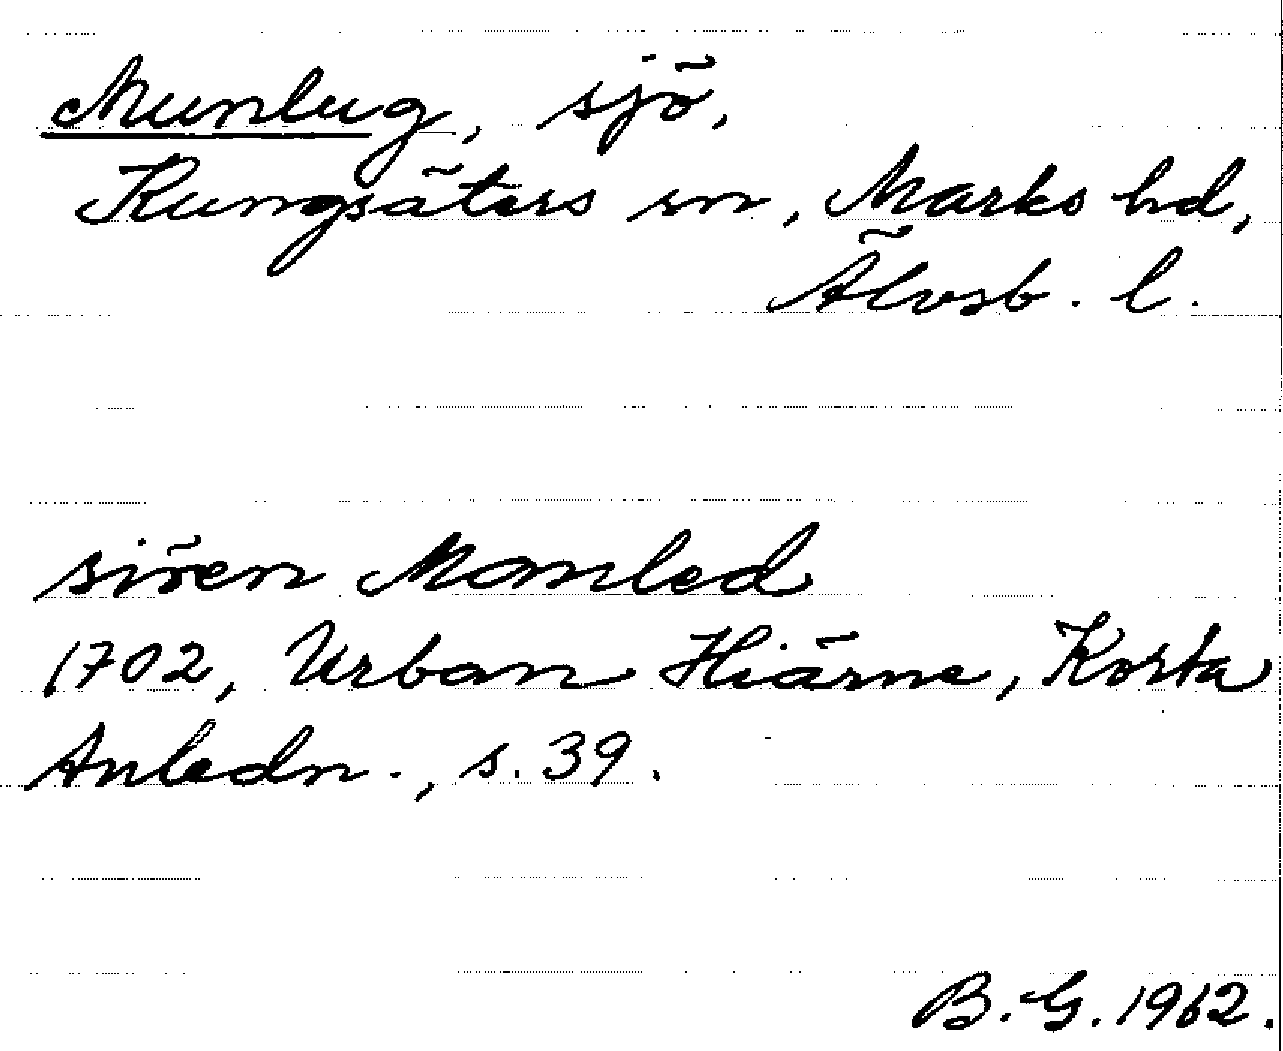 Munlug, sjö,
Kungsäters sn, Marks hd,
Älvsb. l.
siöen Monled
1702, Urban Hiärne, Korta
Anledn., s. 39.
B. G. 1962.